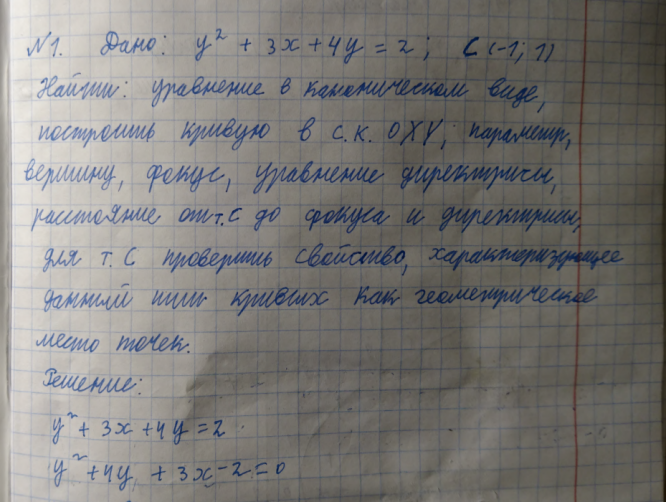 N1. Дано: y² + 3x + 4y = 2; C (-1; 1)
Найти: уравнение в каноническом виде,
построить кривую в с.к. OXY; параметр,
вершину, фокус, уравнение директрисы,
расстояние от т. C до фокуса и директрисы,
для т. C проверить свойство, характеризующее
данный тип кривых как геометрическое
место точек.
Решение:
y² + 3x + 4y = 2
y² + 4y + 3x - 2 = 0